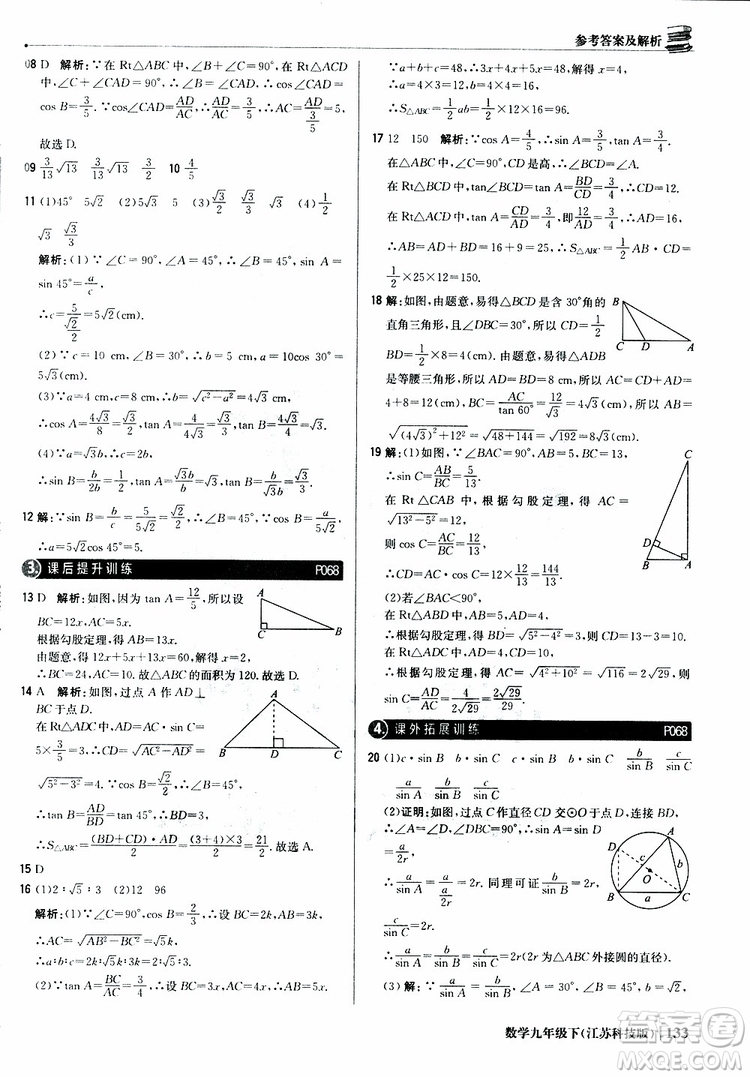 参考答案及解析
08 D 解析:如图,∵在 Rt△ABC 中,∠CAB=90°,∴∠B+∠C=90°.∵AD⊥BC,∴∠C+∠CAD=90°.∴∠B=∠CAD,
cos B=3/5.∴cos∠CAD=AD/AC=3/5,∴cos∠CAD=AD/AC,∴AC=5,
故选 D.
09 3/13√13 3/13√13 3/2 10 4/5
11 (1)45° 5√2 (2)5√3 (3)4√3/2 (4)1/2
√3 √3/3
解析:(1)∵∠C=90°,∠A=45°,∴∠B=45°.
sin 45°=a/c.
∴c=5/(√2/2)=5√2(cm).
(2)∵c=10 cm,∠B=60°,∴∠A=30°,∴a=10cos 30°=
5√3(cm).
(3)∵a=4√3,c=8,∴b=√(c²−a²)=4,
∴cos B=a/c=4√3/8=√3/2,tan A=a/b=4√3/4=√3.
(4)∵a=√3b,∴c=2b,
∴sin B=b/2b=1/2,tan B=b/a=b/√3b=√3/3.
12 解:∵sin B=b/c=5/5√2=√2/2,∴∠B=45°,∠A=45°.
∴a=5√2cos 45°=5(cm).
3. 课后提升训练 P068
13 D 解析:如图,因为 tan A=12/5,所以设
BC=12x,AC=5x.
根据勾股定理,得 AB=13x.
由题意,得 12x+5x+13x=60.解得 x=2.
∴BC=24,AC=10.故△ABC 的面积为 120.故选 D.
14 A 解析:如图,过点 A 作 AD⊥
BC 于点 D.
∵在 Rt△ADC 中,AD=AC·sin C=
5×3/5=3,∴CD=√(AC²−AD²)=
√(5²−3²)=4.
∵在 Rt△ABD 中,∠B=45°,
∴tan B=AD/BD=1,∴BD=AD=3.
∴S△ABC=(BD+CD)·AD/2=(3+4)×3/2=21/2.故选 A.
15 D
16 (1)2∶√5∶3 (2)12 96
解析:(1)∵∠C=90°,cos B=2/3,∴设 BC=2k,AB=3k.
∴AC=√(AB²−BC²)=√5k.
∴a∶b∶c=2k∶√5k∶3k=2∶√5∶3.
(2)∵tan A=BC/AC=4/3,∴设 BC=4x,AC=3x,则 AB=5x.
∵a+b+c=48,∴3x+4x+5x=48,解得 x=4.
∴a=4×3=12,b=4×4=16.
∴S△ABC=1/2ab=1/2×12×16=96.
17 12 150 解析:∵cos A=4/5,∴sin A=3/5,tan A=3/4.
在△ABC 中,∵CD 是高,∴∠BCD=∠A.
在 Rt△BCD 中,tan∠BCD=tan A=BD/CD=3/4,
在 Rt△ACD 中,tan A=CD/AD=3/4,即12/AD=3/4,∴AD=16.
∴AB=AD+BD=16+9=25.∴S△ABC=1/2AB·CD=
1/2×25×12=150.
18 解:如图,由题意,易得△BCD 是含 30°角的
直角三角形,∠DBC=30°,所以 CD=1/2
BD=1/2×8=4(cm).由题意,易得△ADB
是等腰三角形,所以 AD=BD=8 cm.所以 AC=
4+8=12(cm),BC=AC/tan 60°=12/√3=4√3(cm),AB=
√((4√3)²+12²)=√(48+144)=√192=8√3(cm).
19 解:(1)如图,∵∠BAC=90°,
∴sin C=AB/BC=5/13.∵AB=5,∴BC=13.
在 Rt△CAB 中,根据勾股定理,得 AC=
√(13²−5²)=12,
∴cos C=AC/BC=12/13.
∴CD=AC·cos C=12×12/13=144/13.
(2)若∠BAC<90°,
在 Rt△ABD 中,AD=4,AB=5,
∴根据勾股定理,得 BD=√(5²−4²)=3,则 CD=13−3=10.
在 Rt△ACD 中,AD=4,CD=10,
∴根据勾股定理,得 AC=√(4²+10²)=√116=2√29,
∴sin C=AD/AC=4/2√29=2√29/29.
4. 课外拓展训练 P068
20 (1)c·sin B b·sin C c·sin B b·sin C b/sin B c/sin C
a/sin A b/sin B
(2)证明:如图,过点 C 作直径 CD 交⊙O 于点 D.
∴∠A=∠D,∠DBC=90°,∴sin A=sin D=
a/2r.
∴a/sin A=a/(a/2r)=2r.同理可证 b/sin B=2r,
c/sin C=2r.
∴a/sin A=b/sin B=c/sin C=2r(2r 为△ABC 外接圆的直径).
(3)解:∵a/sin A=c/sin C,
数学九年级下(江苏科技版) 133